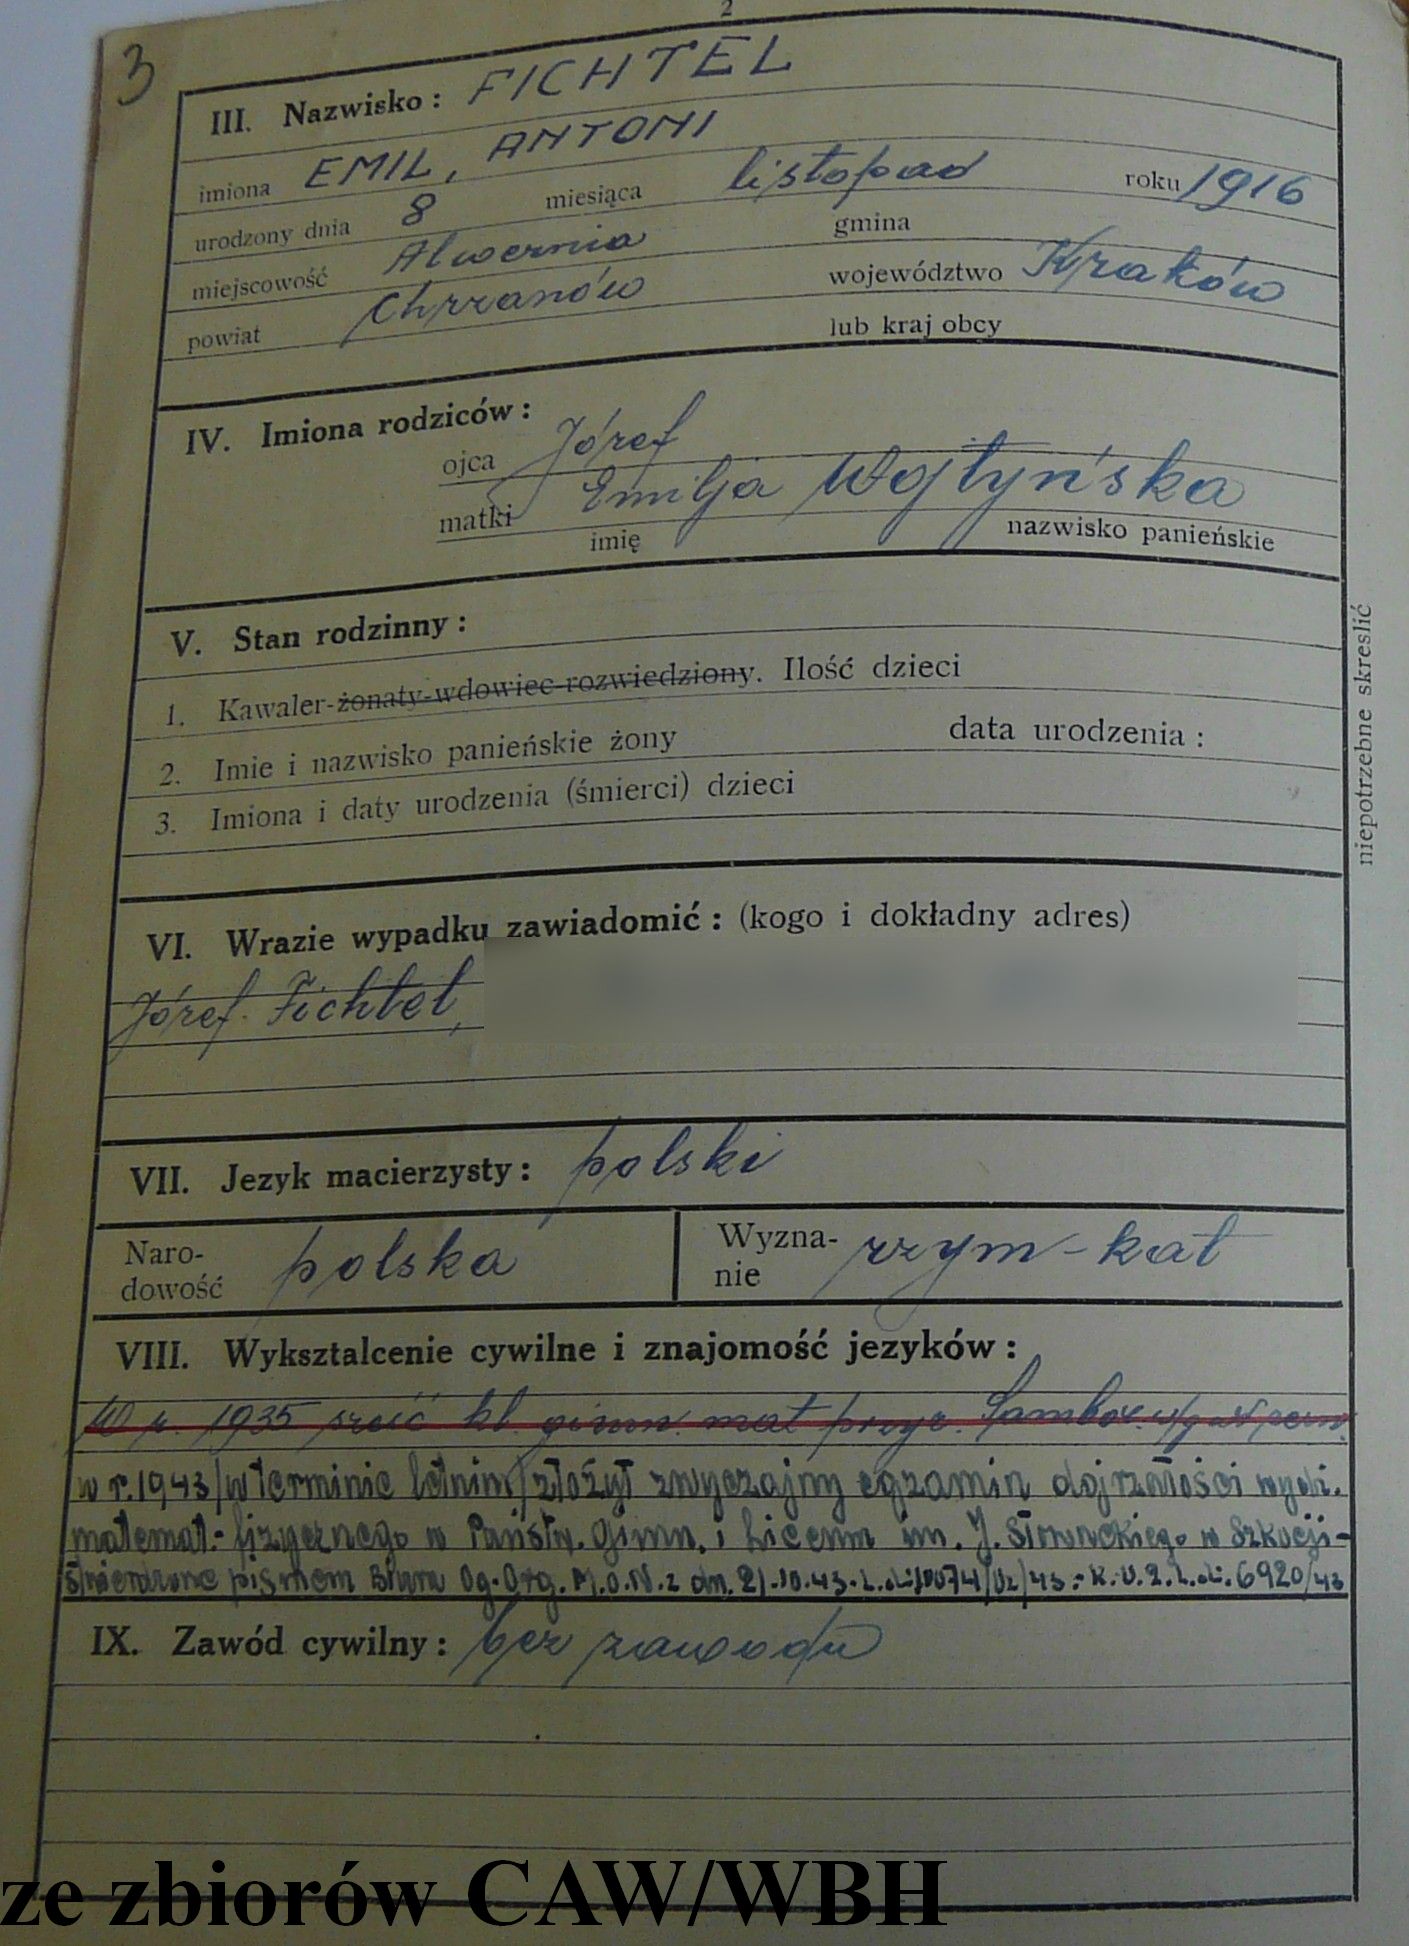 2
3
III. Nazwisko: FICHTEL
imiona EMIL, ANTONI
urodzony dnia 8 miesiąca listopad roku 1916
miejscowość Alwernia gmina
powiat Chrzanów województwo Kraków
lub kraj obcy
IV. Imiona rodziców:
ojca Józef
matki Emilja Wojtyńska
imię nazwisko panieńskie
V. Stan rodzinny:
1. Kawaler-żonaty-wdowiec-rozwiedziony. Ilość dzieci
2. Imie i nazwisko panieńskie żony data urodzenia:
3. Imiona i daty urodzenia (śmierci) dzieci
niepotrzebne skreslić
VI. Wrazie wypadku zawiadomić: (kogo i dokładny adres)
Józef Fichtel,
VII. Jezyk macierzysty: polski
Naro- polska Wyzna- rzym-kat
dowość nie
VIII. Wyksztalcenie cywilne i znajomość jezyków:
W r. 1935 sześć kl. gimn. mat przyr. Sambor
w r. 1943/w terminie letnim/złożył zwyczajny egzamin dojrzałości wydz.
matemat.-fizycznego w Państw. Gimn. i Liceum im. J. Słowackiego w Szkocji-
Stwierdzone pismem Biura Og-Org. M.O.N. z dn. 21.10.43. L.dz. K.U.2.L.dz. 6920/43
IX. Zawód cywilny: bez zawodu
ze zbiorów CAW/WBH